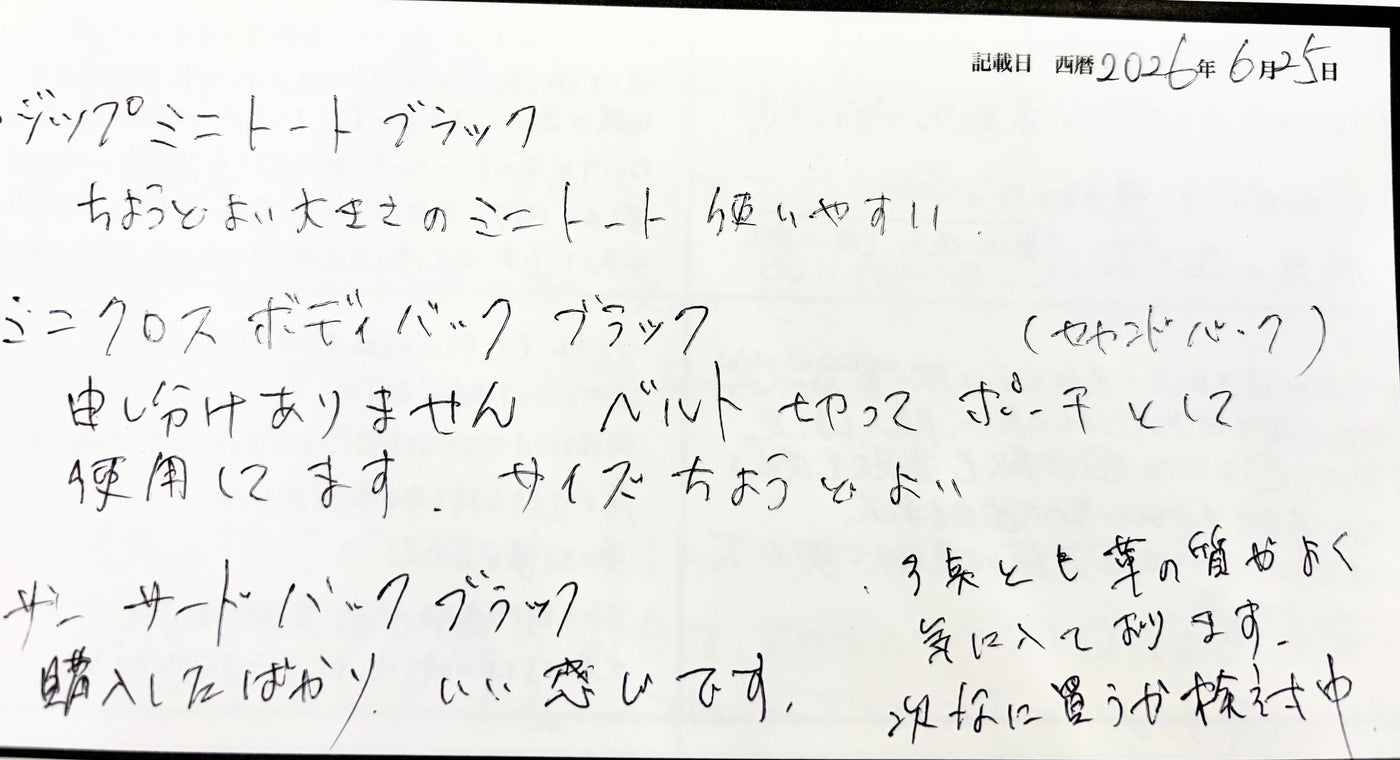 記載日 西暦2026年6月25日
・ジップミニトート ブラック
ちょうどよい大きさのミニトート 使いやすい.
ミニクロスボディバック ブラック
(セカンドバック)
申し分けありません ベルト切ってポーチとして
使用してます. サイズちょうどよい
ザ サードバック ブラック
購入したばかり. いい感じです.
3点とも革の質がよく
気に入っております.
次なに買うか検討中